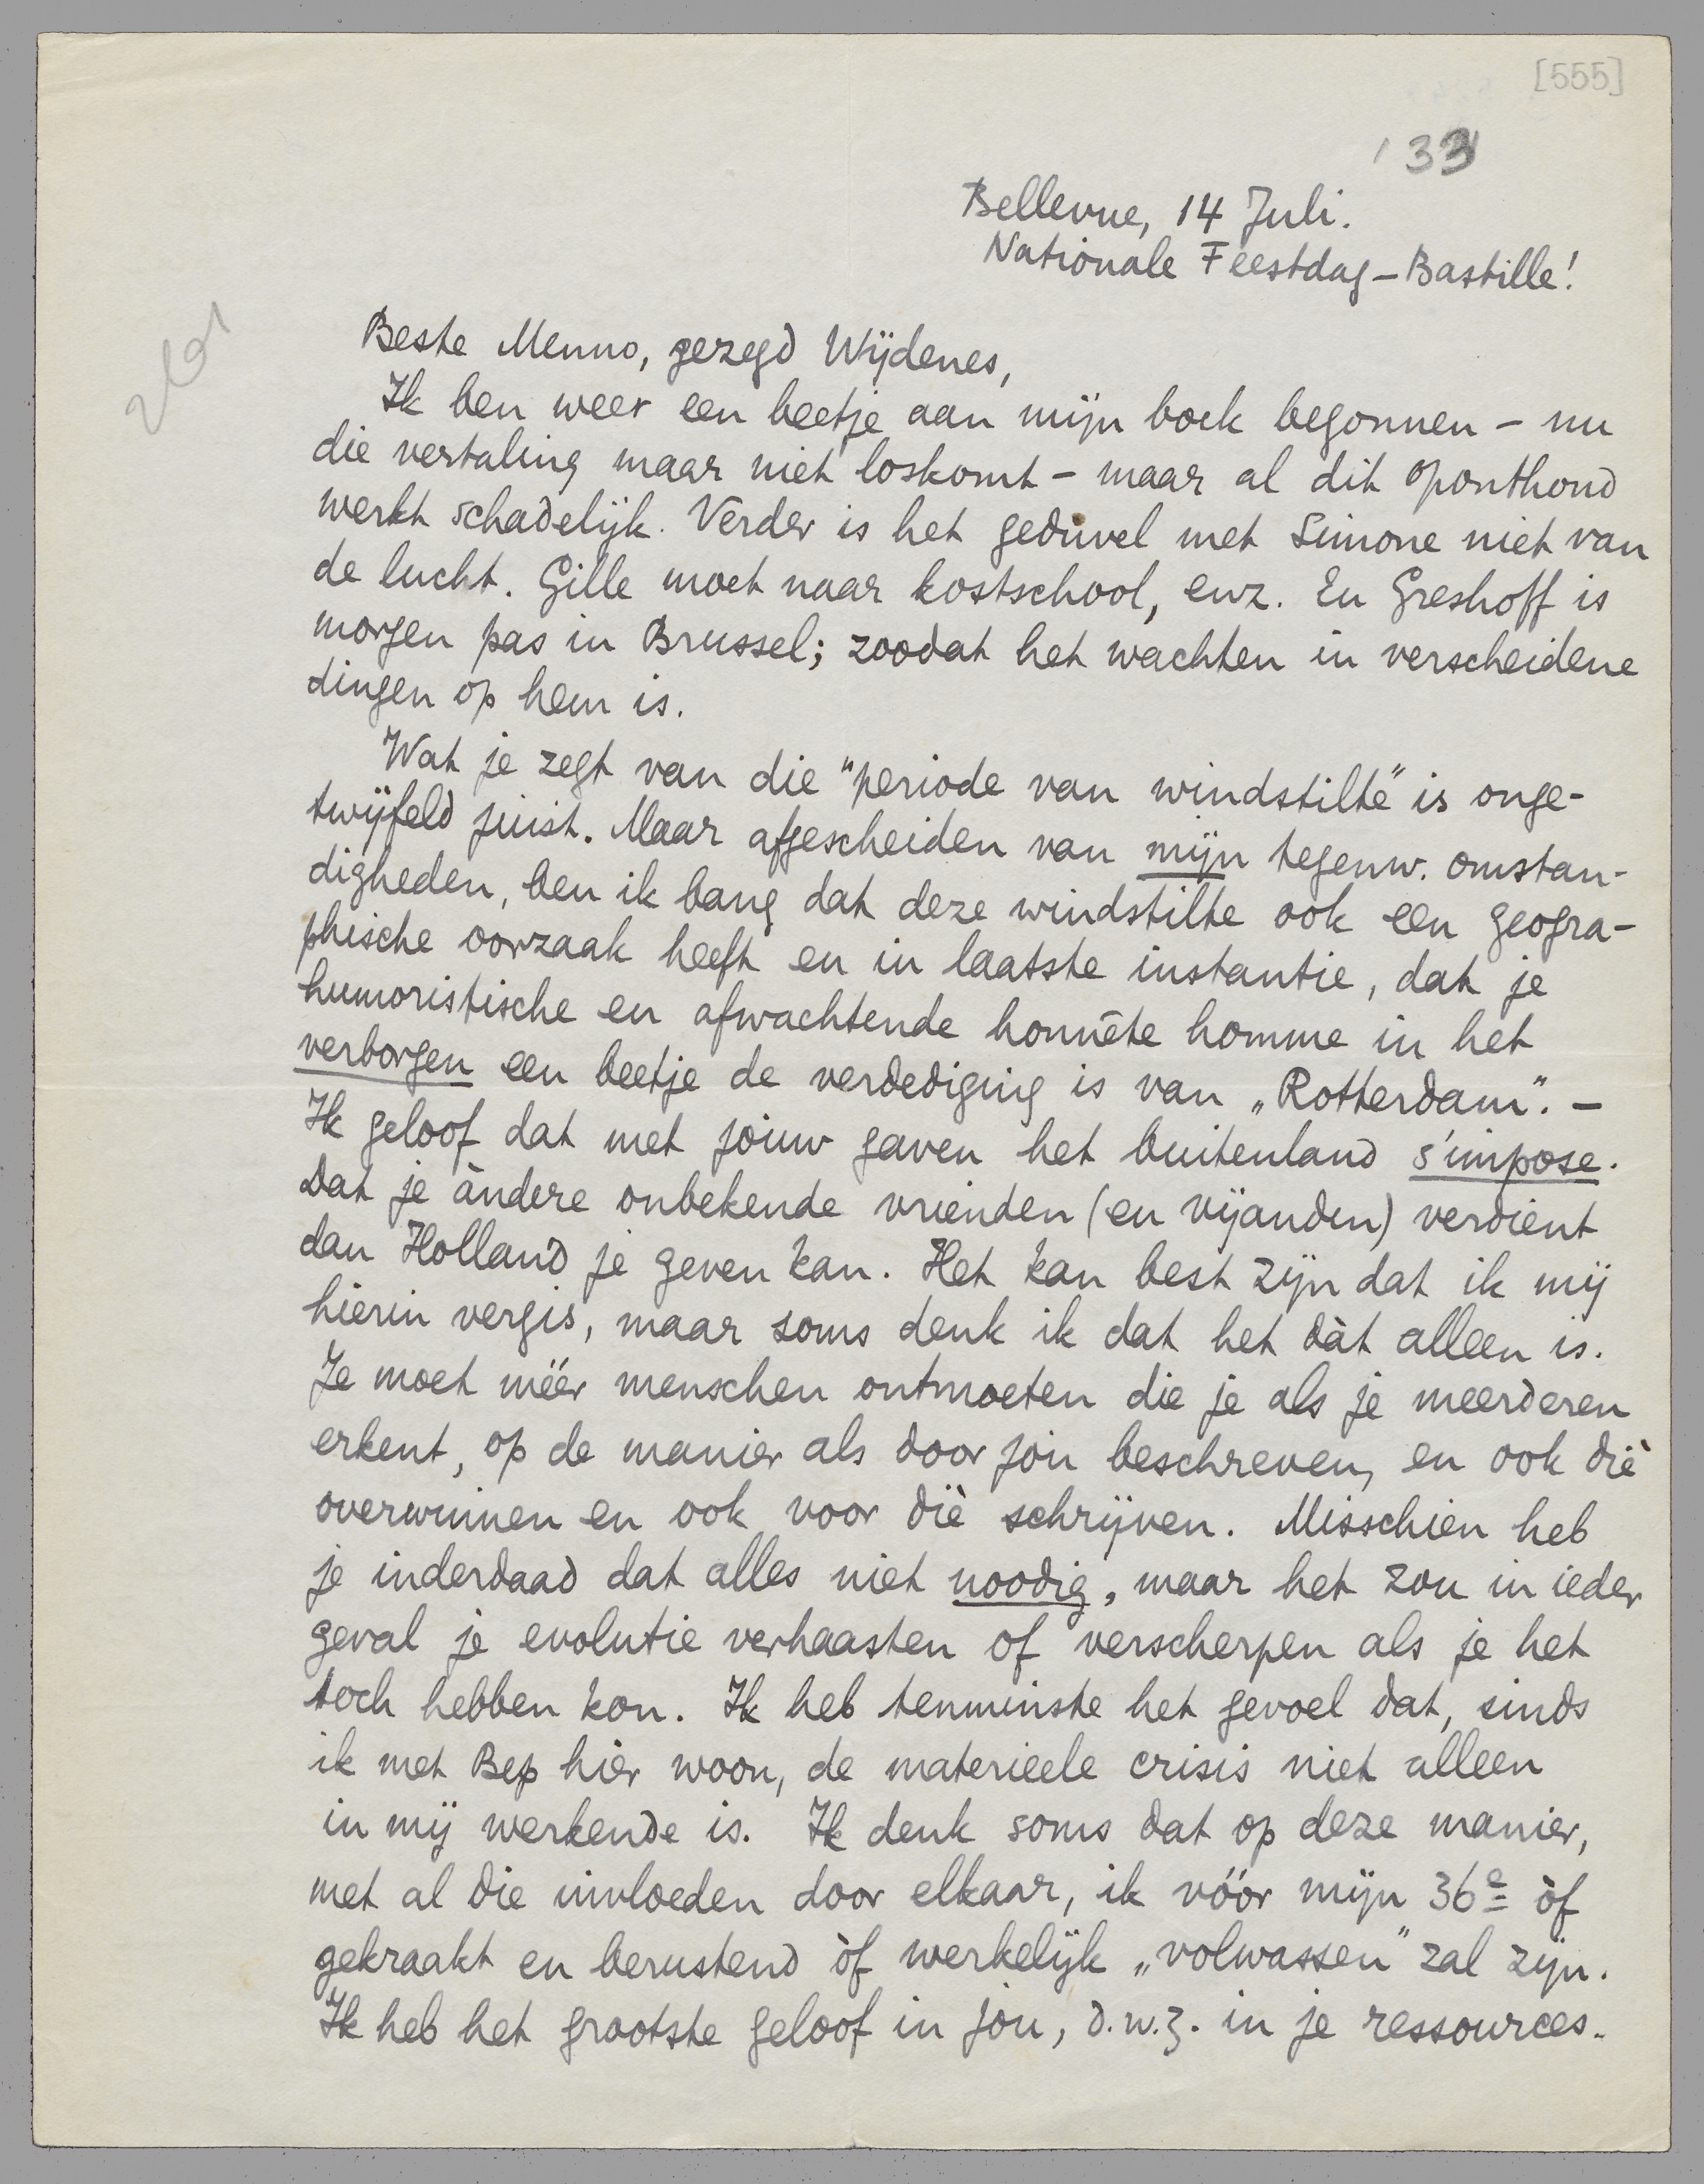 [555]
'33
Bellevue, 14 Juli.
Nationale Feestdag - Bastille!
Beste Menno, gezegd Wijdenes,
Ik ben weer een beetje aan mijn boek begonnen - nu
die vertaling maar niet loskomt - maar al dit oponthoud
werkt schadelijk. Verder is het geduvel met Simone niet van
de lucht. Gille moet naar kostschool, enz. En Greshoff is
morgen pas in Brussel; zoodat het wachten in verscheidene
dingen op hem is.
Wat je zegt van die "periode van windstilte" is onge-
twijfeld juist. Maar afgescheiden van mijn tegenw. omstan-
digheden, ben ik bang dat deze windstilte ook een geogra-
phische oorzaak heeft en in laatste instantie, dat je
humoristische en afwachtende honnête homme in het
verborgen een beetje de verdediging is van „Rotterdam". -
Ik geloof dat met jouw gaven het buitenland s'impose.
Dat je àndere onbekende vrienden (en vijanden) verdient
dan Holland je geven kan. Het kan best zijn dat ik mij
hierin vergis, maar soms denk ik dat het dàt alleen is.
Je moet méér menschen ontmoeten die je als je meerderen
erkent, op de manier als door jou beschreven, en ook díe
overwinnen en ook voor díe schrijven. Misschien heb
je inderdaad dat alles niet noodig, maar het zou in ieder
geval je evolutie verhaasten of verscherpen als je het
toch hebben kon. Ik heb tenminste het gevoel dat, sinds
ik met Bep hier woon, de materieele crisis niet alleen
in mij werkende is. Ik denk soms dat op deze manier,
met al die invloeden door elkaar, ik vóór mijn 36e òf
gekraakt en berustend òf werkelijk „volwassen" zal zijn.
Ik heb het grootste geloof in jou, d.w.z. in je ressources.